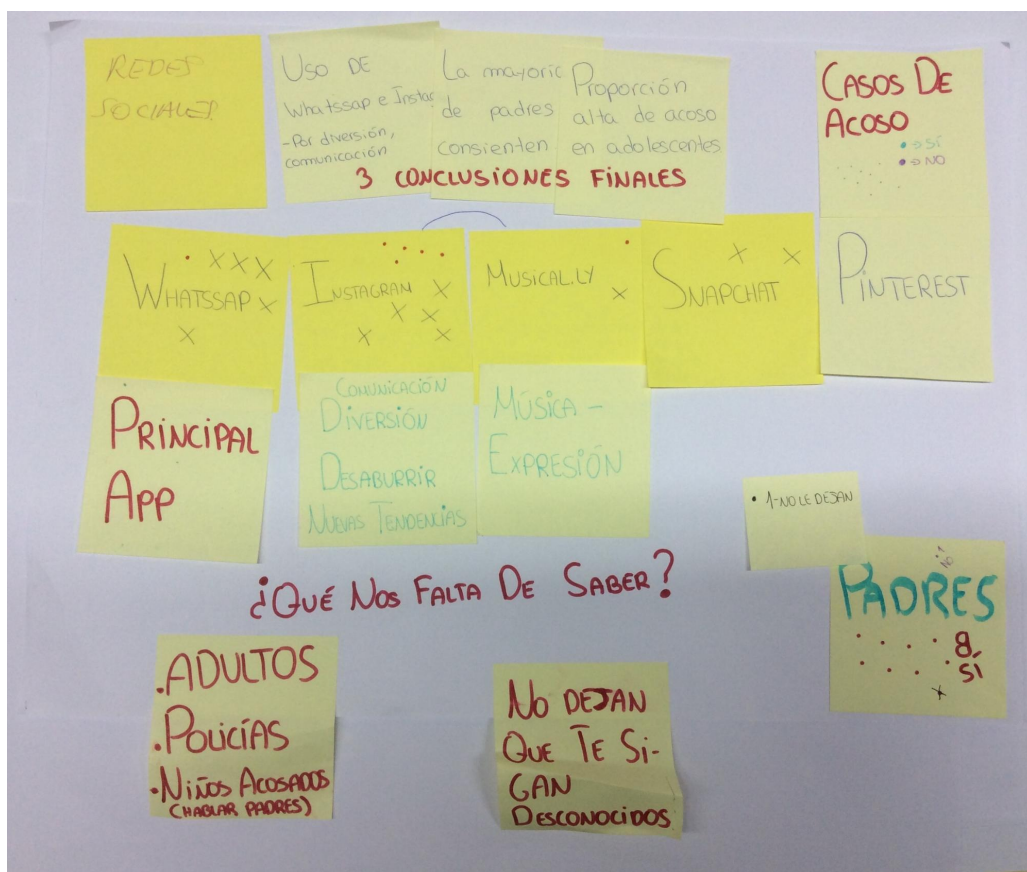 REDES
SOCIALES
USO DE
Whatssap e Instar
-Por diversión,
comunicación
La mayoric
de padres
consienten
Proporción
alta de acoso
en adolescentes
3 CONCLUSIONES FINALES
CASOS DE
ACOSO
• → SÍ
• → NO
WHATSSAP
INSTAGRAM
MUSICAL.LY
SNAPCHAT
PINTEREST
PRINCIPAL
APP
COMUNICACIÓN
DIVERSIÓN
DESABURRIR
NUEVAS TENDENCIAS
MÚSICA -
EXPRESIÓN
• 1-NO LE DEJAN
¿QUÉ NOS FALTA DE SABER?
PADRES
8
SÍ
.ADULTOS
.POLICÍAS
.NIÑOS ACOSADOS
(HABLAR PADRES)
NO DEJAN
QUE TE SI-
GAN
DESCONOCIDOS